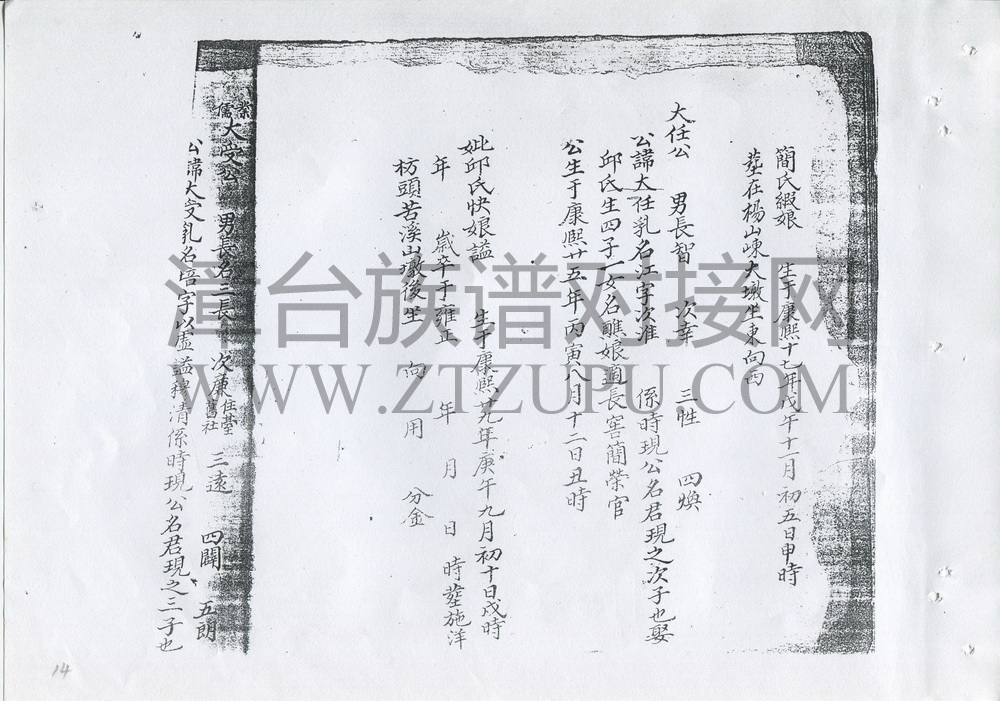 簡氏緞娘 生于康熙十七年戊午十一月初五日申時
塟在楊山崠大墩坐東向西
大任公 男長智 次幸 三性 四煥
公諱大任乳名江字次淮 係時現公名君現之次子也娶
邱氏生四子一女名醮娘適長窖簡榮官
公生于康熙廿五年丙寅八月十二日丑時
妣邱氏快娘謚 生于康熙廿九年庚午九月初十日戌時
年 歲卒于雍正 年 月 日 時塟施洋
枋頭苦溪山墩後坐 向 用 分金
大受公 男長名三長 次東住臺舊社 三遠 四闢 五朗
公諱大受乳名培字以虛謚穆清係時現公名君現之三子也
漳台族谱对接网
WWW.ZTZUPU.COM
14